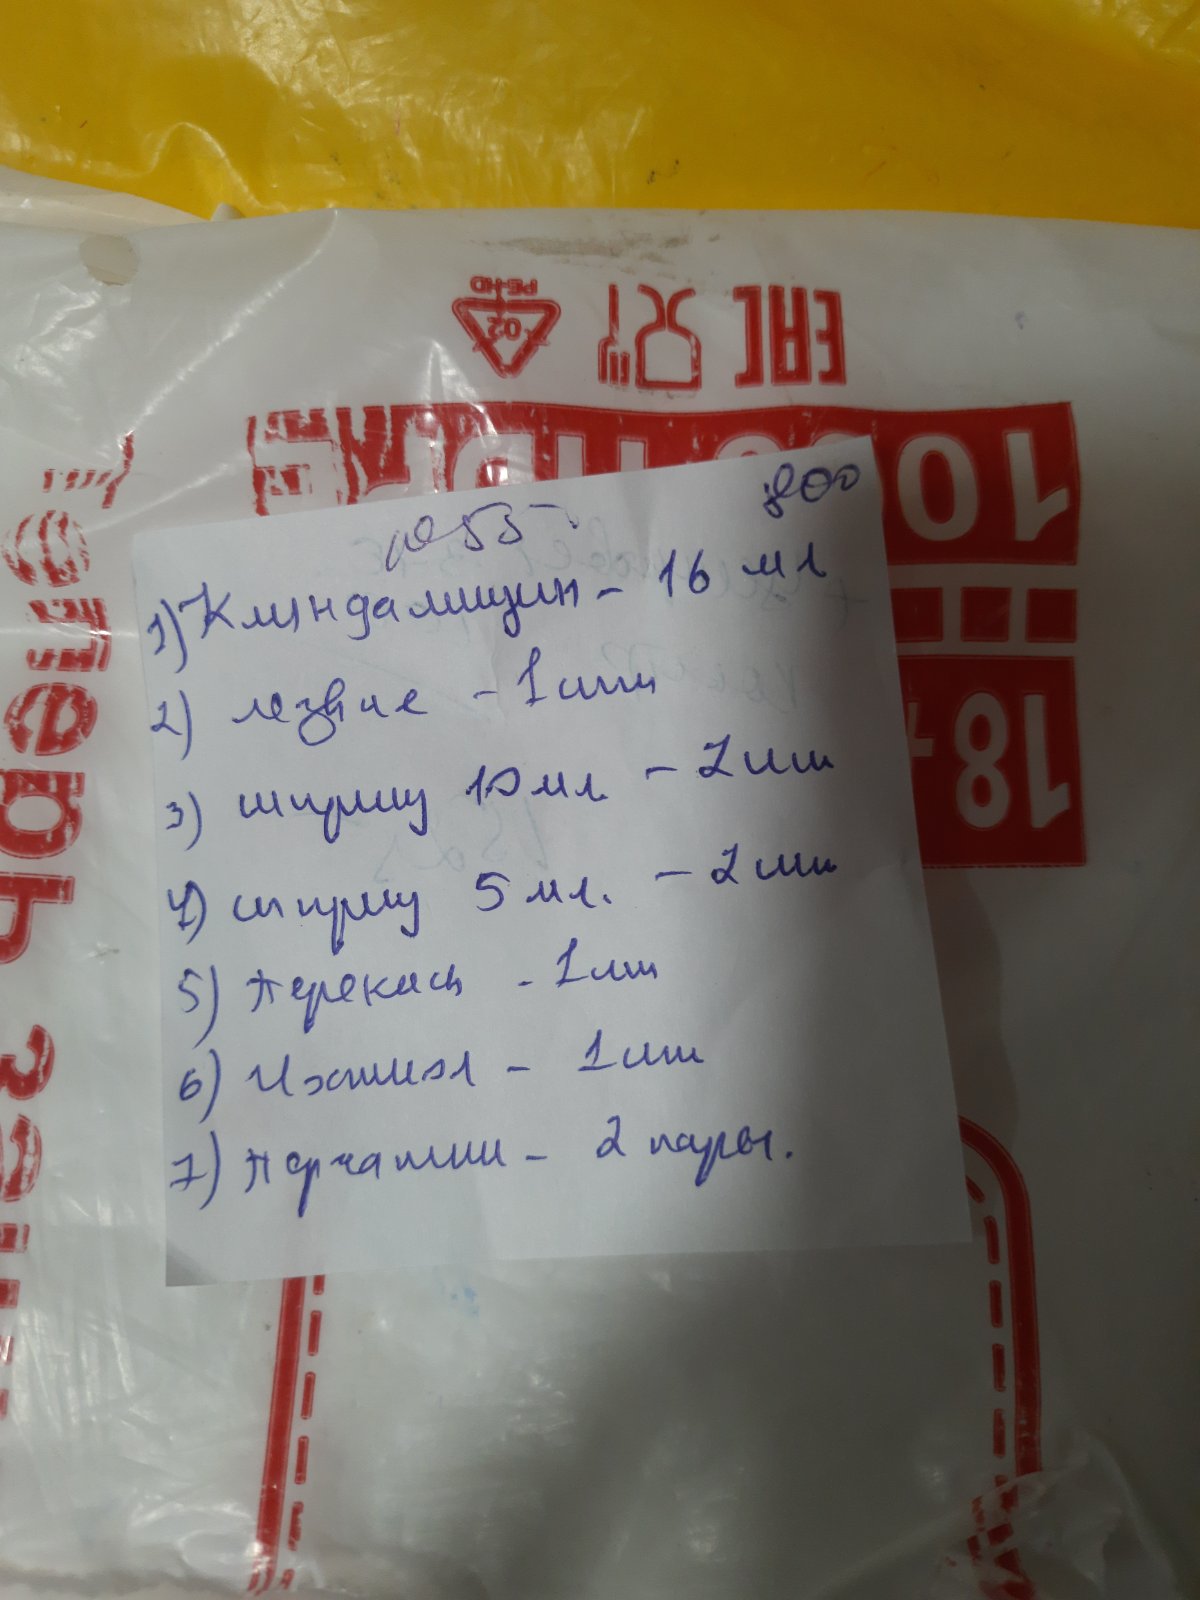 PE-HD
02
EAC
10
18+
№55
800
1) Клиндамицин - 16 мл
2) лезвие - 1 шт
3) шприц 10 мл - 2 шт
4) шприц 5 мл. - 2 шт
5) Перекись - 1 шт
6) Ихтиол - 1 шт
7) Перчатки - 2 пары.